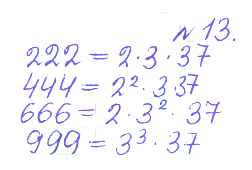 № 13.
222 = 2·3·37
444 = 2²·3 37
666 = 2·3²·37
999 = 3³·37